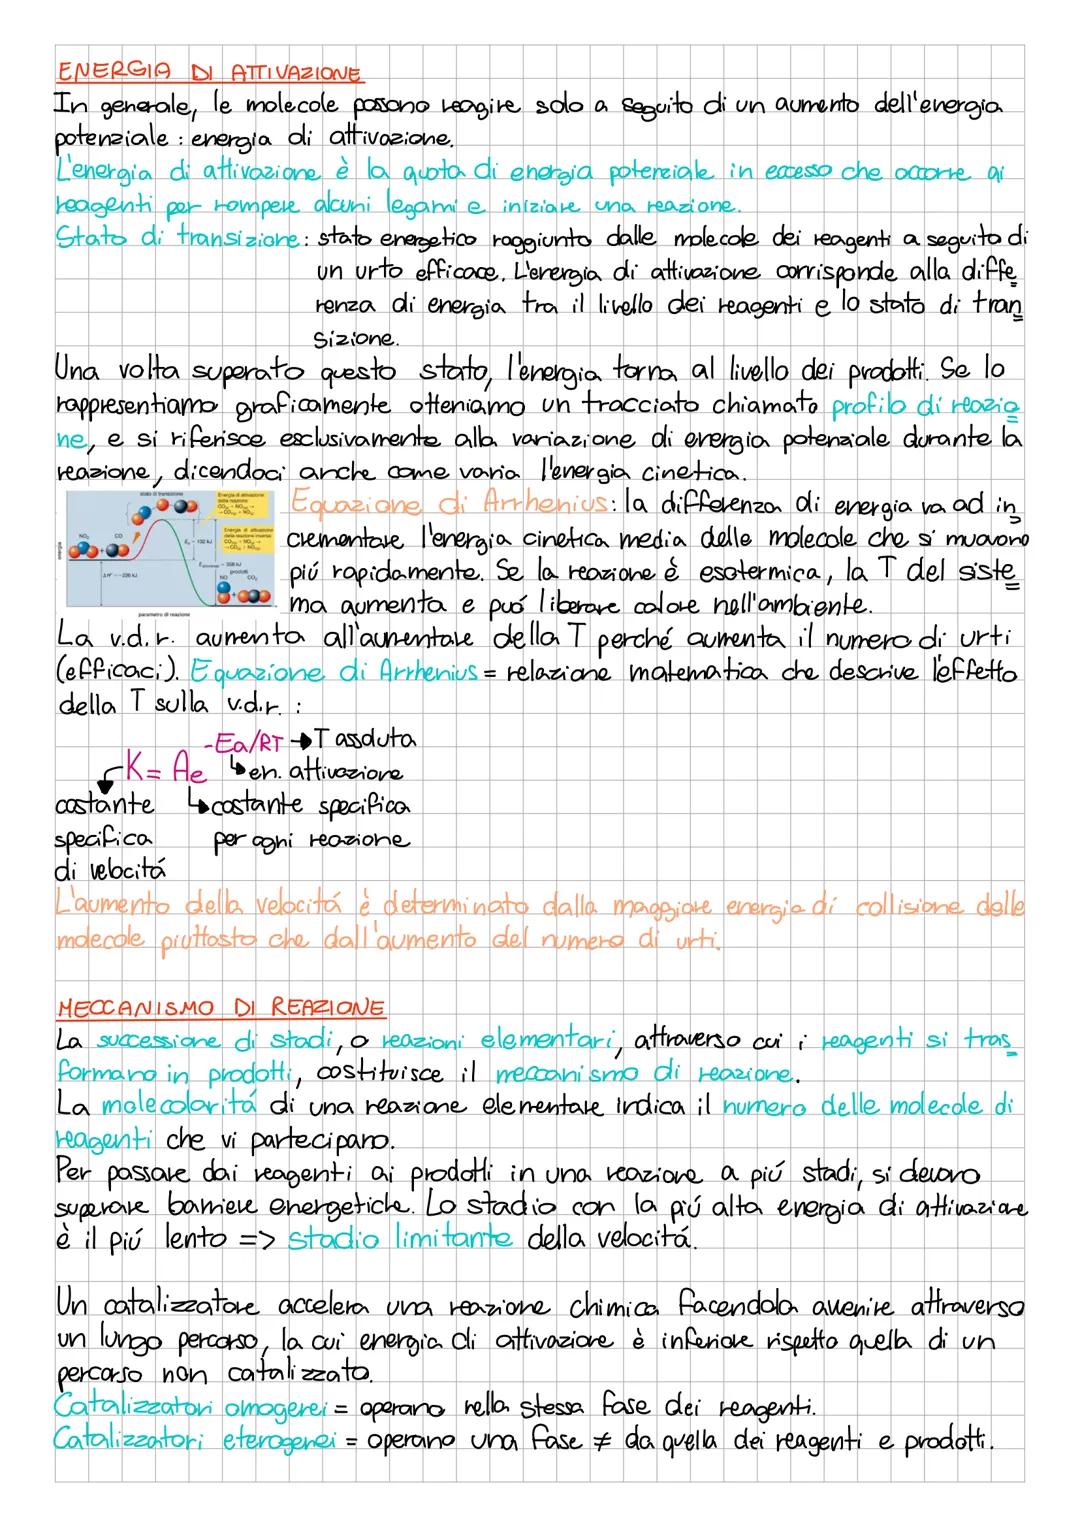 ENERGIA DI ATTIVAZIONE
In generale, le molecole possono reagire solo a seguito di un aumento dell'energia
potenziale : energia di attivazione.
L'energia di attivazione è la quota di energia potenziale in eccesso che occorre ai
reagenti per rompere alcuni legami e iniziare una reazione.
Stato di transizione: stato energetico raggiunto dalle molecole dei reagenti a seguito di
un urto efficace. L'energia di attivazione corrisponde alla diffe
renza di energia tra il livello dei reagenti e lo stato di tran
sizione.
Una volta superato questo stato, l'energia torna al livello dei prodotti. Se lo
rappresentiamo graficamente otteniamo un tracciato chiamato profilo di reazio
ne, e si riferisce esclusivamente alla variazione di energia potenziale durante la
reazione, dicendoci anche come varia l'energia cinetica.
stato di transizione
Energia di attivazione
della reazione
Energia di attivazione
della reazione inversa
NO₂
CO
Eₐ = 132 kJ
358 kJ
ΔH° = -226 kJ
prodotti
NO
CO₂
energia
parametro di reazione
Equazione di Arrhenius: la differenza di energia va ad in
crementare l'energia cinetica media delle molecole che si muovono
piú rapidamente. Se la reazione è esotermica, la T del siste
ma aumenta e puó liberare calore nell'ambiente.
La v.d.r. aumenta all'aumentare della T perché aumenta il numero di urti
(efficaci). Equazione di Arrhenius = relazione matematica che descrive l'effetto
della T sulla v.d.r. :
-Ea/RT → T assoluta
K = Ae ↳ en. attivazione
costante ↳ costante specifica
specifica per ogni reazione
di velocitá
L'aumento della velocitá è determinato dalla maggiore energia di collisione delle
molecole piuttosto che dall'aumento del numero di urti.
MECCANISMO DI REAZIONE
La successione di stadi, o reazioni elementari, attraverso cui i reagenti si tras
formano in prodotti, costituisce il meccanismo di reazione.
La molecolaritá di una reazione elementare indica il numero delle molecole di
reagenti che vi partecipano.
Per passare dai reagenti ai prodotti in una reazione a piú stadi, si devono
superare barriere energetiche. Lo stadio con la piú alta energia di attivazione
è il piú lento => stadio limitante della velocitá.
Un catalizzatore accelera una reazione chimica facendola avvenire attraverso
un lungo percorso, la cui energia di attivazione è inferiore rispetto quella di un
percorso non catalizzato.
Catalizzatori omogenei = operano nella stessa fase dei reagenti.
Catalizzatori eterogenei = operano una fase ≠ da quella dei reagenti e prodotti.